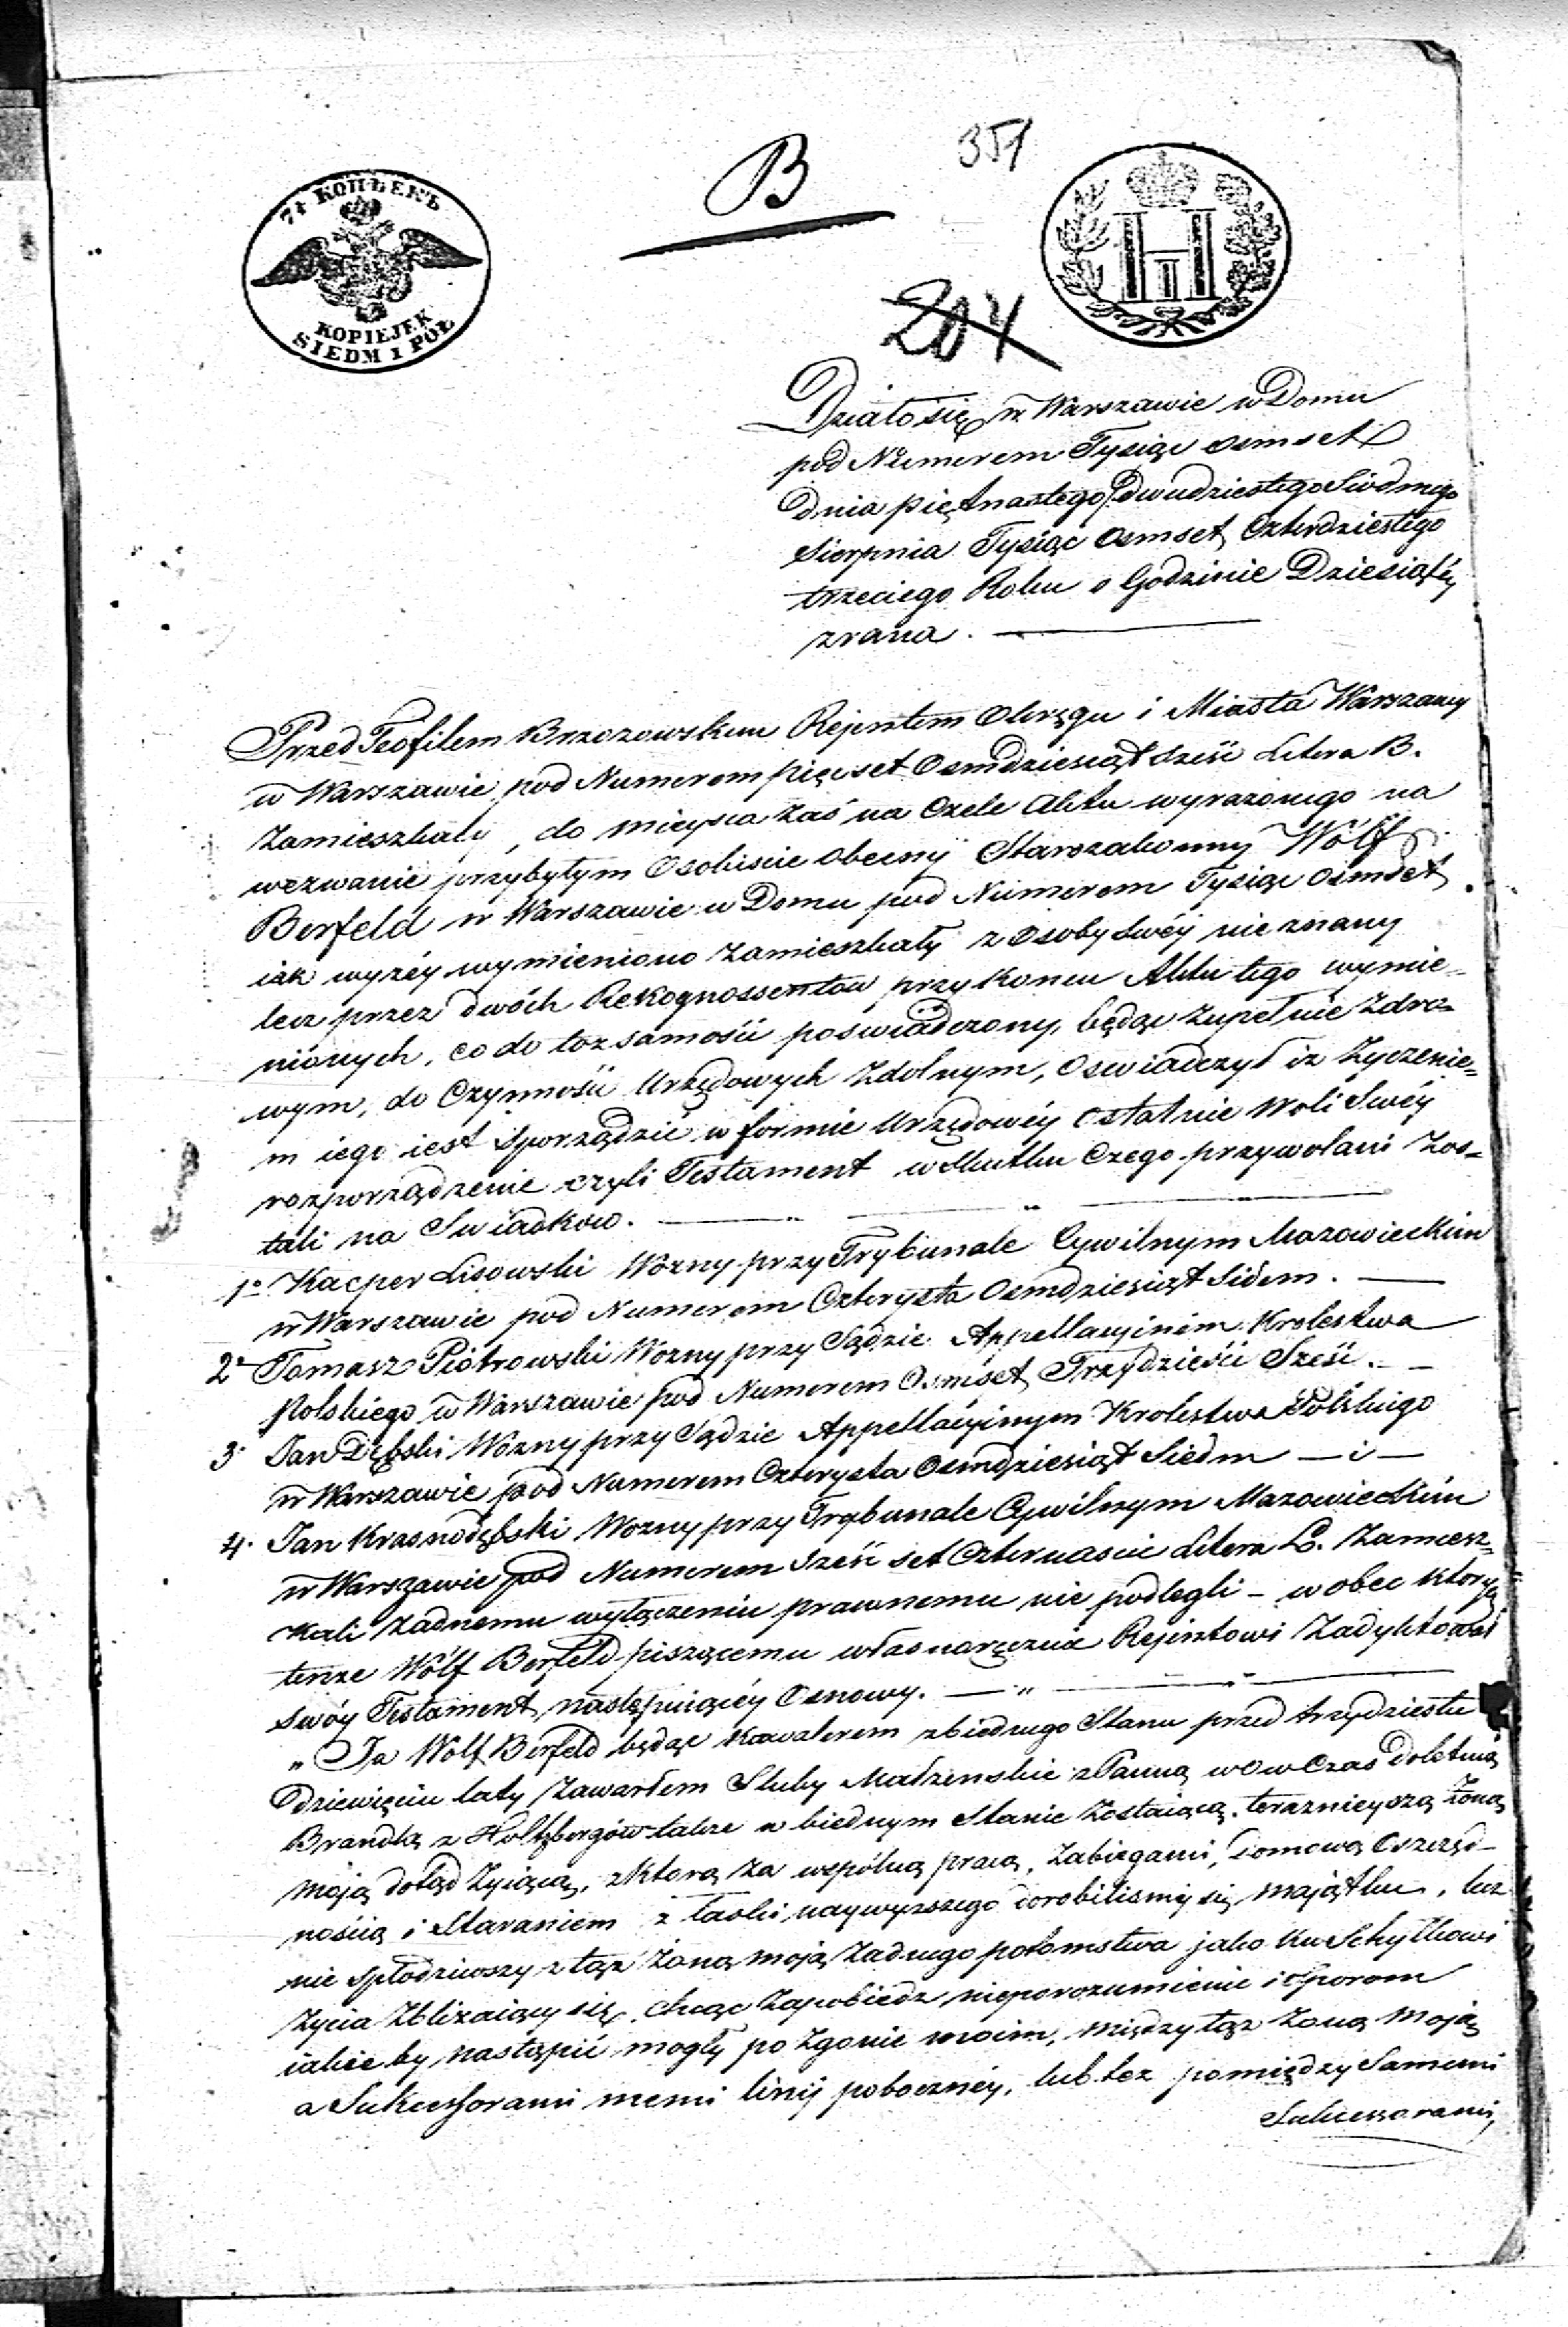 351
B
7½ КОПѢЕКЪ
KOPIEJEK
SIEDM I PÓŁ
H I
204
Działo się w Warszawie w Domu
pod Numerem Tysiąc osmset
Dnia piętnastego/dwudziestego Siódmego
Sierpnia Tysiąc Osmset Czterdziestego
trzeciego Roku o Godzinie Dziesiątéy
zrana. —
Przed Teofilem Brzozowskim Rejentem Okręgu i Miasta Warszawy
w Warszawie pod Numerem pięcset Osmdziesiąt sześć Litera B.
Zamieszkały, do mieysca zaś na Czele Aktu wyrażonego na
wezwanie przybyłym Osobiscie obecny Starozakonny Wölf
Berfeld w Warszawie w Domu pod Numerem Tysiąc Osmset
iak wyżéy wymieniono Zamieszkały z Osoby Swéy nie znany
lecz przez dwóch Rekognossentów przy Koncu Aktu tego wymie=
nionych, co do tożsamości poswiadczony, będąc Zupełnie Zdro=
wym, do Czynności Urzędowych Zdolnym, Oswiadczył iż Życzenie=
m iego iest Sporządzić w formie Urzędowéy Ostatnie Woli Swéy
rozporządzenie czyli Testament w Skutku Czego przywołani Zos=
tali na Swiadków. — " — " —
1o Kacper Lisowski Wozny przy Trybunale Cywilnym Mazowieckim
w Warszawie pod Numerem Czterysta Osmdziesiąt Sidem. —
2o Tomasz Piotrowski Wozny przy Sądzie Appellacyinem Krolestwa
Polskiego w Warszawie pod Numerem Osmset Trzydzieści Sześć. —
3. Jan Dębski Wozny przy Sądzie Appellacyinym Krolestwa Polskiego
w Warszawie pod Numerem Czterysta Osmdziesiąt Siedm — i —
4. Jan Krasnodębski Wozny przy Trybunale Cywilnym Mazowieckim
w Warszawie pod Numerem Sześć set Czternascie Litera L. Zamiesz=
kali Żadnemu wyłączeniu prawnemu nie podlegli – w obec których
tenże Wölf Berfeld piszącemu własnoręcznie Rejentowi Zadyktował
Swóy Testament, następuiącéy Osnowy. — " — " —
„ Ja Wolf Berfeld będąc Kawalerem z biednego Stanu przed trzydziestu
Dziewięciu laty Zawarłem Sluby Małżenskie z Panną wowczas Doletnią
Brandlą z Holtzbergów także w biednym Stanie Zostaiącą, teraznieyszą Żoną
moją dotąd Żyiącą, z którą za wspólną pracą, Zabiegami, Domową Oszczęd-
nością i Staraniem z łaski naywyższego dorobilismy się majątku, lecz
nie Spłodziwszy z tąż Żoną moją Żadnego potomstwa jako Ku Schyłkowi
Życia Zbliżaiący się, chcąc Zapobiedz nieporozumienie i Sporom
iakie by nastąpić mogły po Zgonie moim, między tąż Żoną moją
a Sukcessorami memi linij poboczney, lub też pomiędzy Samemi
Sukcessorami,